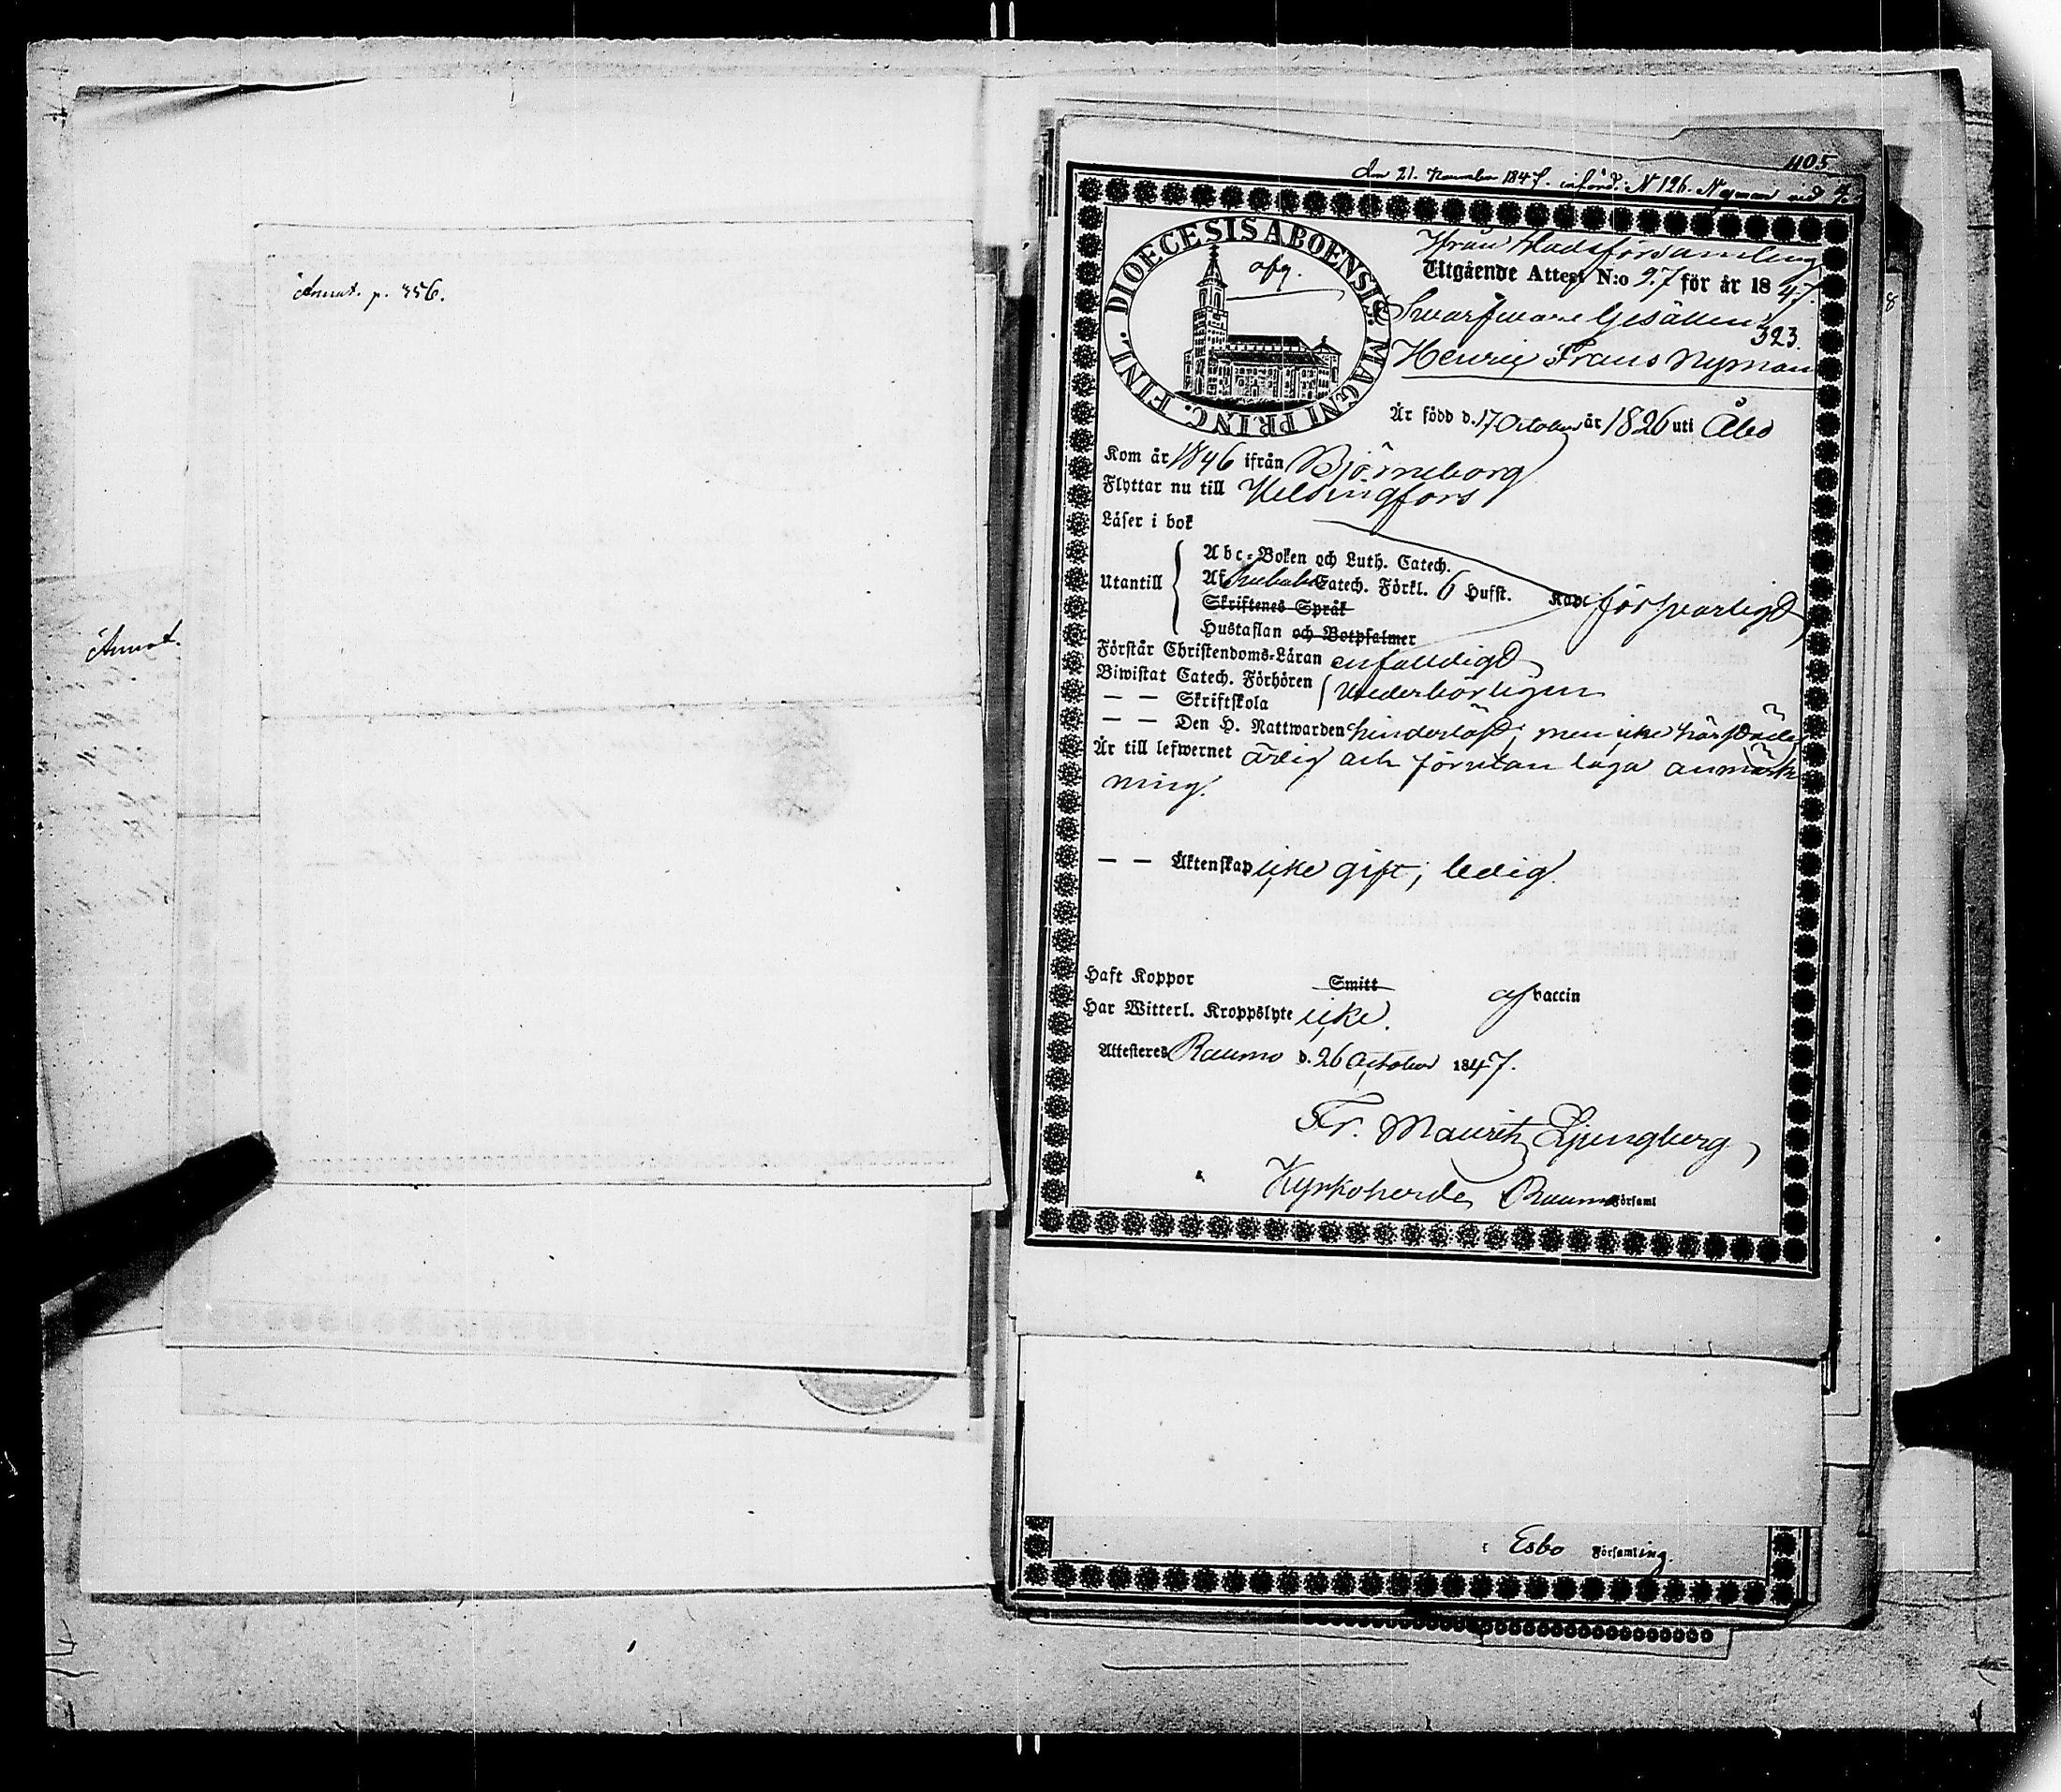 Annot. p. 356.
Annot.
405
den 21. November 1847. införd. N 126. Nyman
DIOECESIS ABOENSIS. MAGNI PRINC. FINL.
afg.
Ifrån Stadsförsamling
Utgående Attest N:o 27 för år 1847.
Swarfware Gesällen
323.
Henric Frans Nyman
Är född d. 17 October år 1826 uti Åbo
Kom år 1846 ifrån Björneborg
Flyttar nu till Helsingfors
Läser i bok
Utantill
Abc-Boken och Luth. Catech.
Af Catech. Förkl. 6 Hufst. försvarligt
Skriftenes Språk
Hustaflan och Botpsalmer
Förstår Christendoms-Läran enfaldigt
Biwistat Catech. Förhören
— — Skriftskola vederbörligen
— — Den H. Nattwarden hinderlöst, men icke härstädes
Är till lefwernet ärlig och förutan laga anmärk
ning.
— — Äktenskap icke gift, ledig.
Haft Koppor Smitt af vaccin
Har Witterl. Kroppslyte icke.
Attesteres Raumo d. 26 October 1847.
Fr. Mauritz Ljungberg
Kyrkoherde Raumo Församl
i Esbo Församling.
8